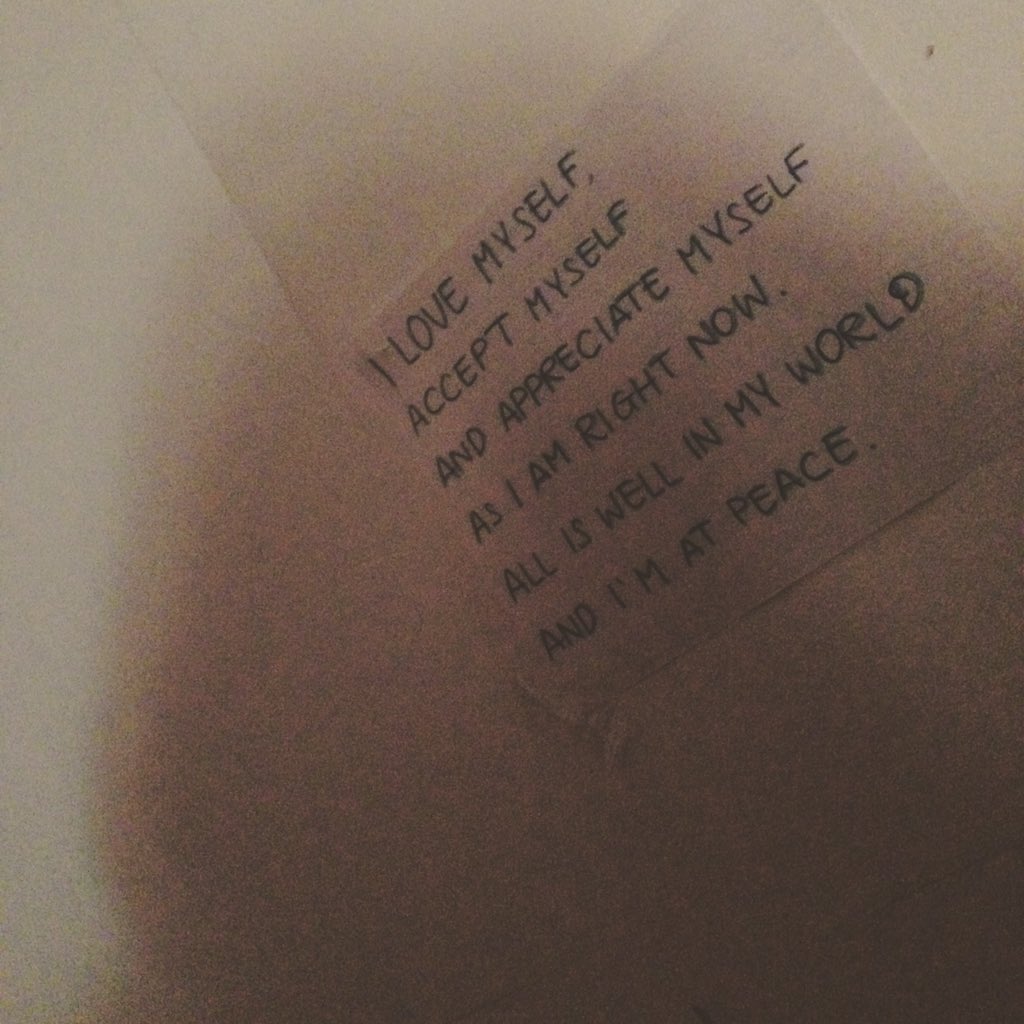 I LOVE MYSELF,
ACCEPT MYSELF
AND APPRECIATE MYSELF
AS I AM RIGHT NOW.
ALL IS WELL IN MY WORLD
AND I'M AT PEACE.